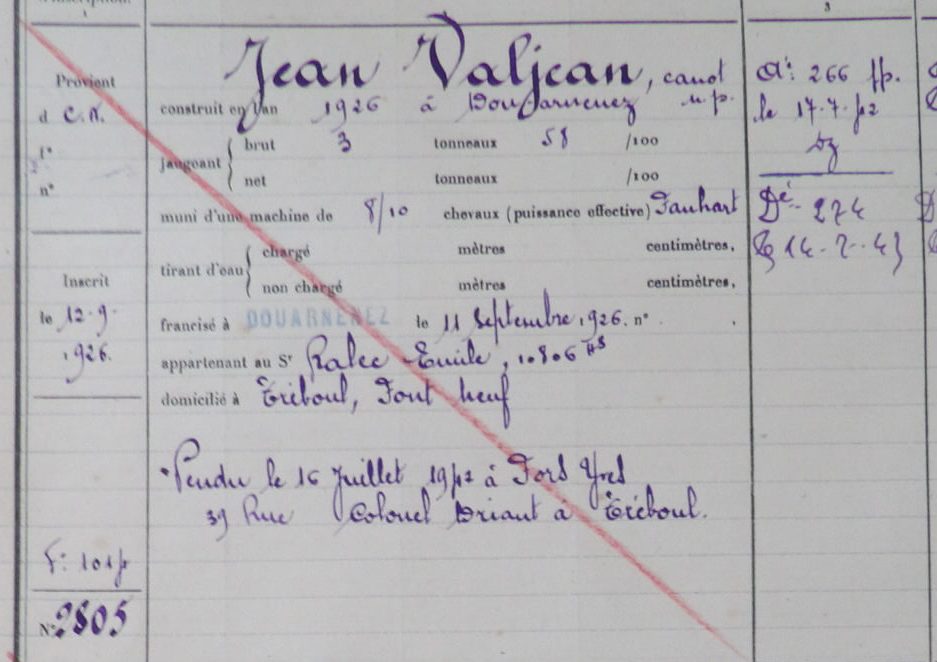 1
3
Provient
d C.N.
f°
n°
Inscrit
le 12.9.
1926.
F: 101
N° 2805
Jean Valjean, canot
construit en l'an 1926 à Douarnenez
jaugeant { brut 3 tonneaux 58 /100
net tonneaux /100
muni d'une machine de 8/10 chevaux (puissance effective) Panhart
tirant d'eau { chargé mètres centimètres,
non chargé mètres centimètres,
francisé à DOUARNENEZ le 11 Septembre 1926. n° .
appartenant au Sr Emile, 10806 HS
domicilié à Tréboul, Pont neuf
Vendu le 16 Juillet 1942 à Yves
39 Rue Colonel Driant à Tréboul.
266
le 17.7.42
Dé 274
14-2-43